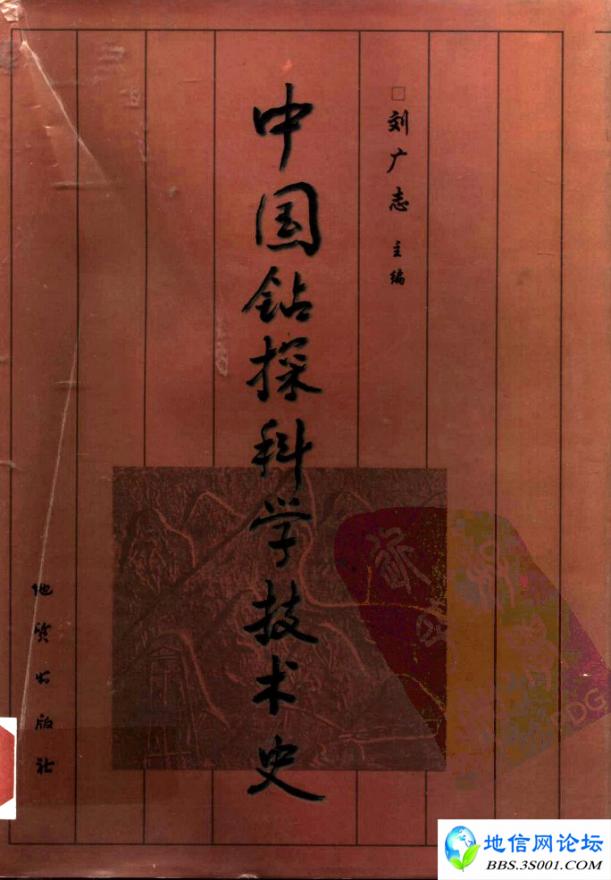 □刘广志 主编
中国钻探科学技术史
地质出版社
PDG
地信网论坛
BBS.3S001.COM